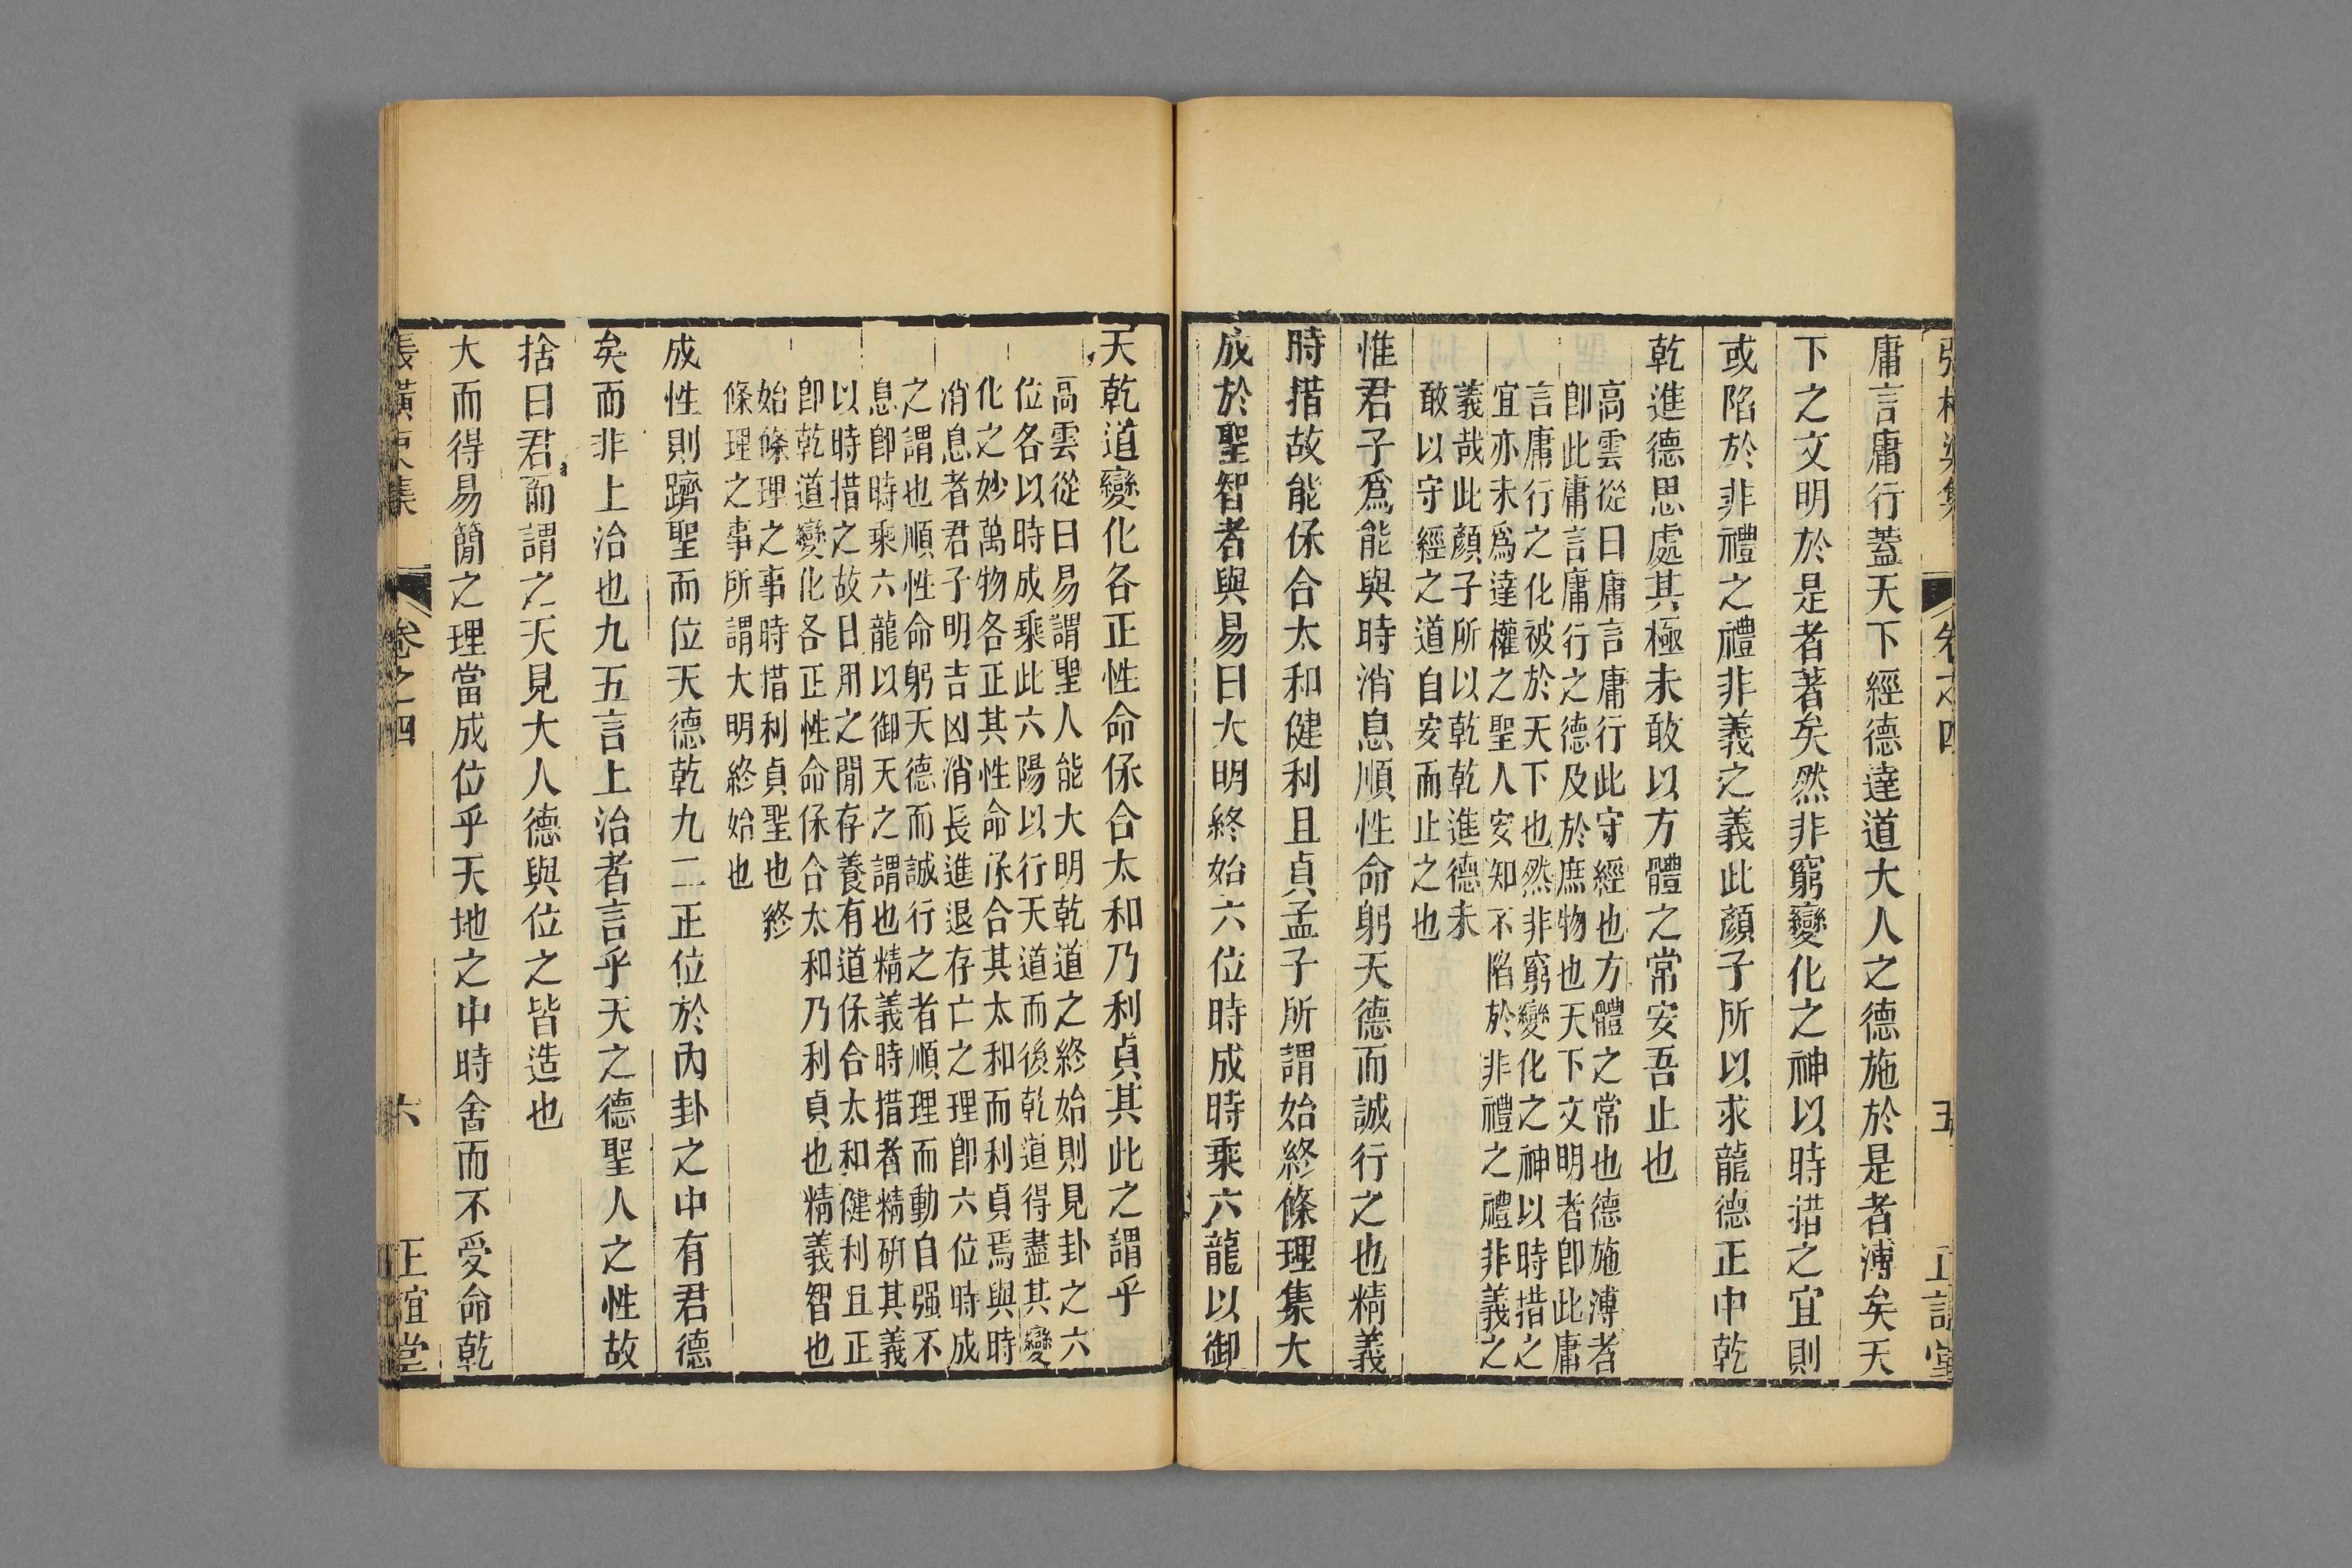 卷之四
五
庸言庸行蓋天下經德達道大人之德施於是者溥矣天
下之文明於是者著矣然非窮變化之神以時措之宜則
或陷於非禮之禮非義之義此顏子所以求龍德正中乾
乾進德思處其極未敢以方體之常安吾止也
高雲從曰庸言庸行此守經也方體之常也德施溥者
卽此庸言庸行之德及於庶物也天下文明者卽此庸
言庸行之化被於天下也然非窮變化之神以時措之
宜亦未爲達權之聖人安知不陷於非禮之禮非義之
義哉此顏子所以乾乾進德未
敢以守經之道自安而止之也
惟君子爲能與時消息順性命躬天德而誠行之也精義
時措故能保合太和健利且貞孟子所謂始終條理集大
成於聖智者與易曰大明終始六位時成時乘六龍以御
天乾道變化各正性命保合太和乃利貞其此之謂乎
高雲從曰易謂聖人能大明乾道之終始則見卦之六
位各以時成乘此六陽以行天道而後乾道得盡其變
化之妙萬物各正其性命保合其太和而利貞焉與時
消息者君子明吉凶消長進退存亡之理卽六位時成
之謂也順性命躬天德而誠行之者順理而動自强不
息卽時乘六龍以御天之謂也精義時措者精研其義
以時措之故日用之閒存養有道保合太和健利且正
卽乾道變化各正性命保合太和乃利貞也精義智也
始條理之事時措利貞聖也終
條理之事所謂大明終始也
成性則躋聖而位天德乾九二正位於內卦之中有君德
矣而非上治也九五言上治者言乎天之德聖人之性故
捨曰君而謂之天見大人德與位之皆造也
大而得易簡之理當成位乎天地之中時舍而不受命乾
張橫渠集
卷之四
六
正誼堂